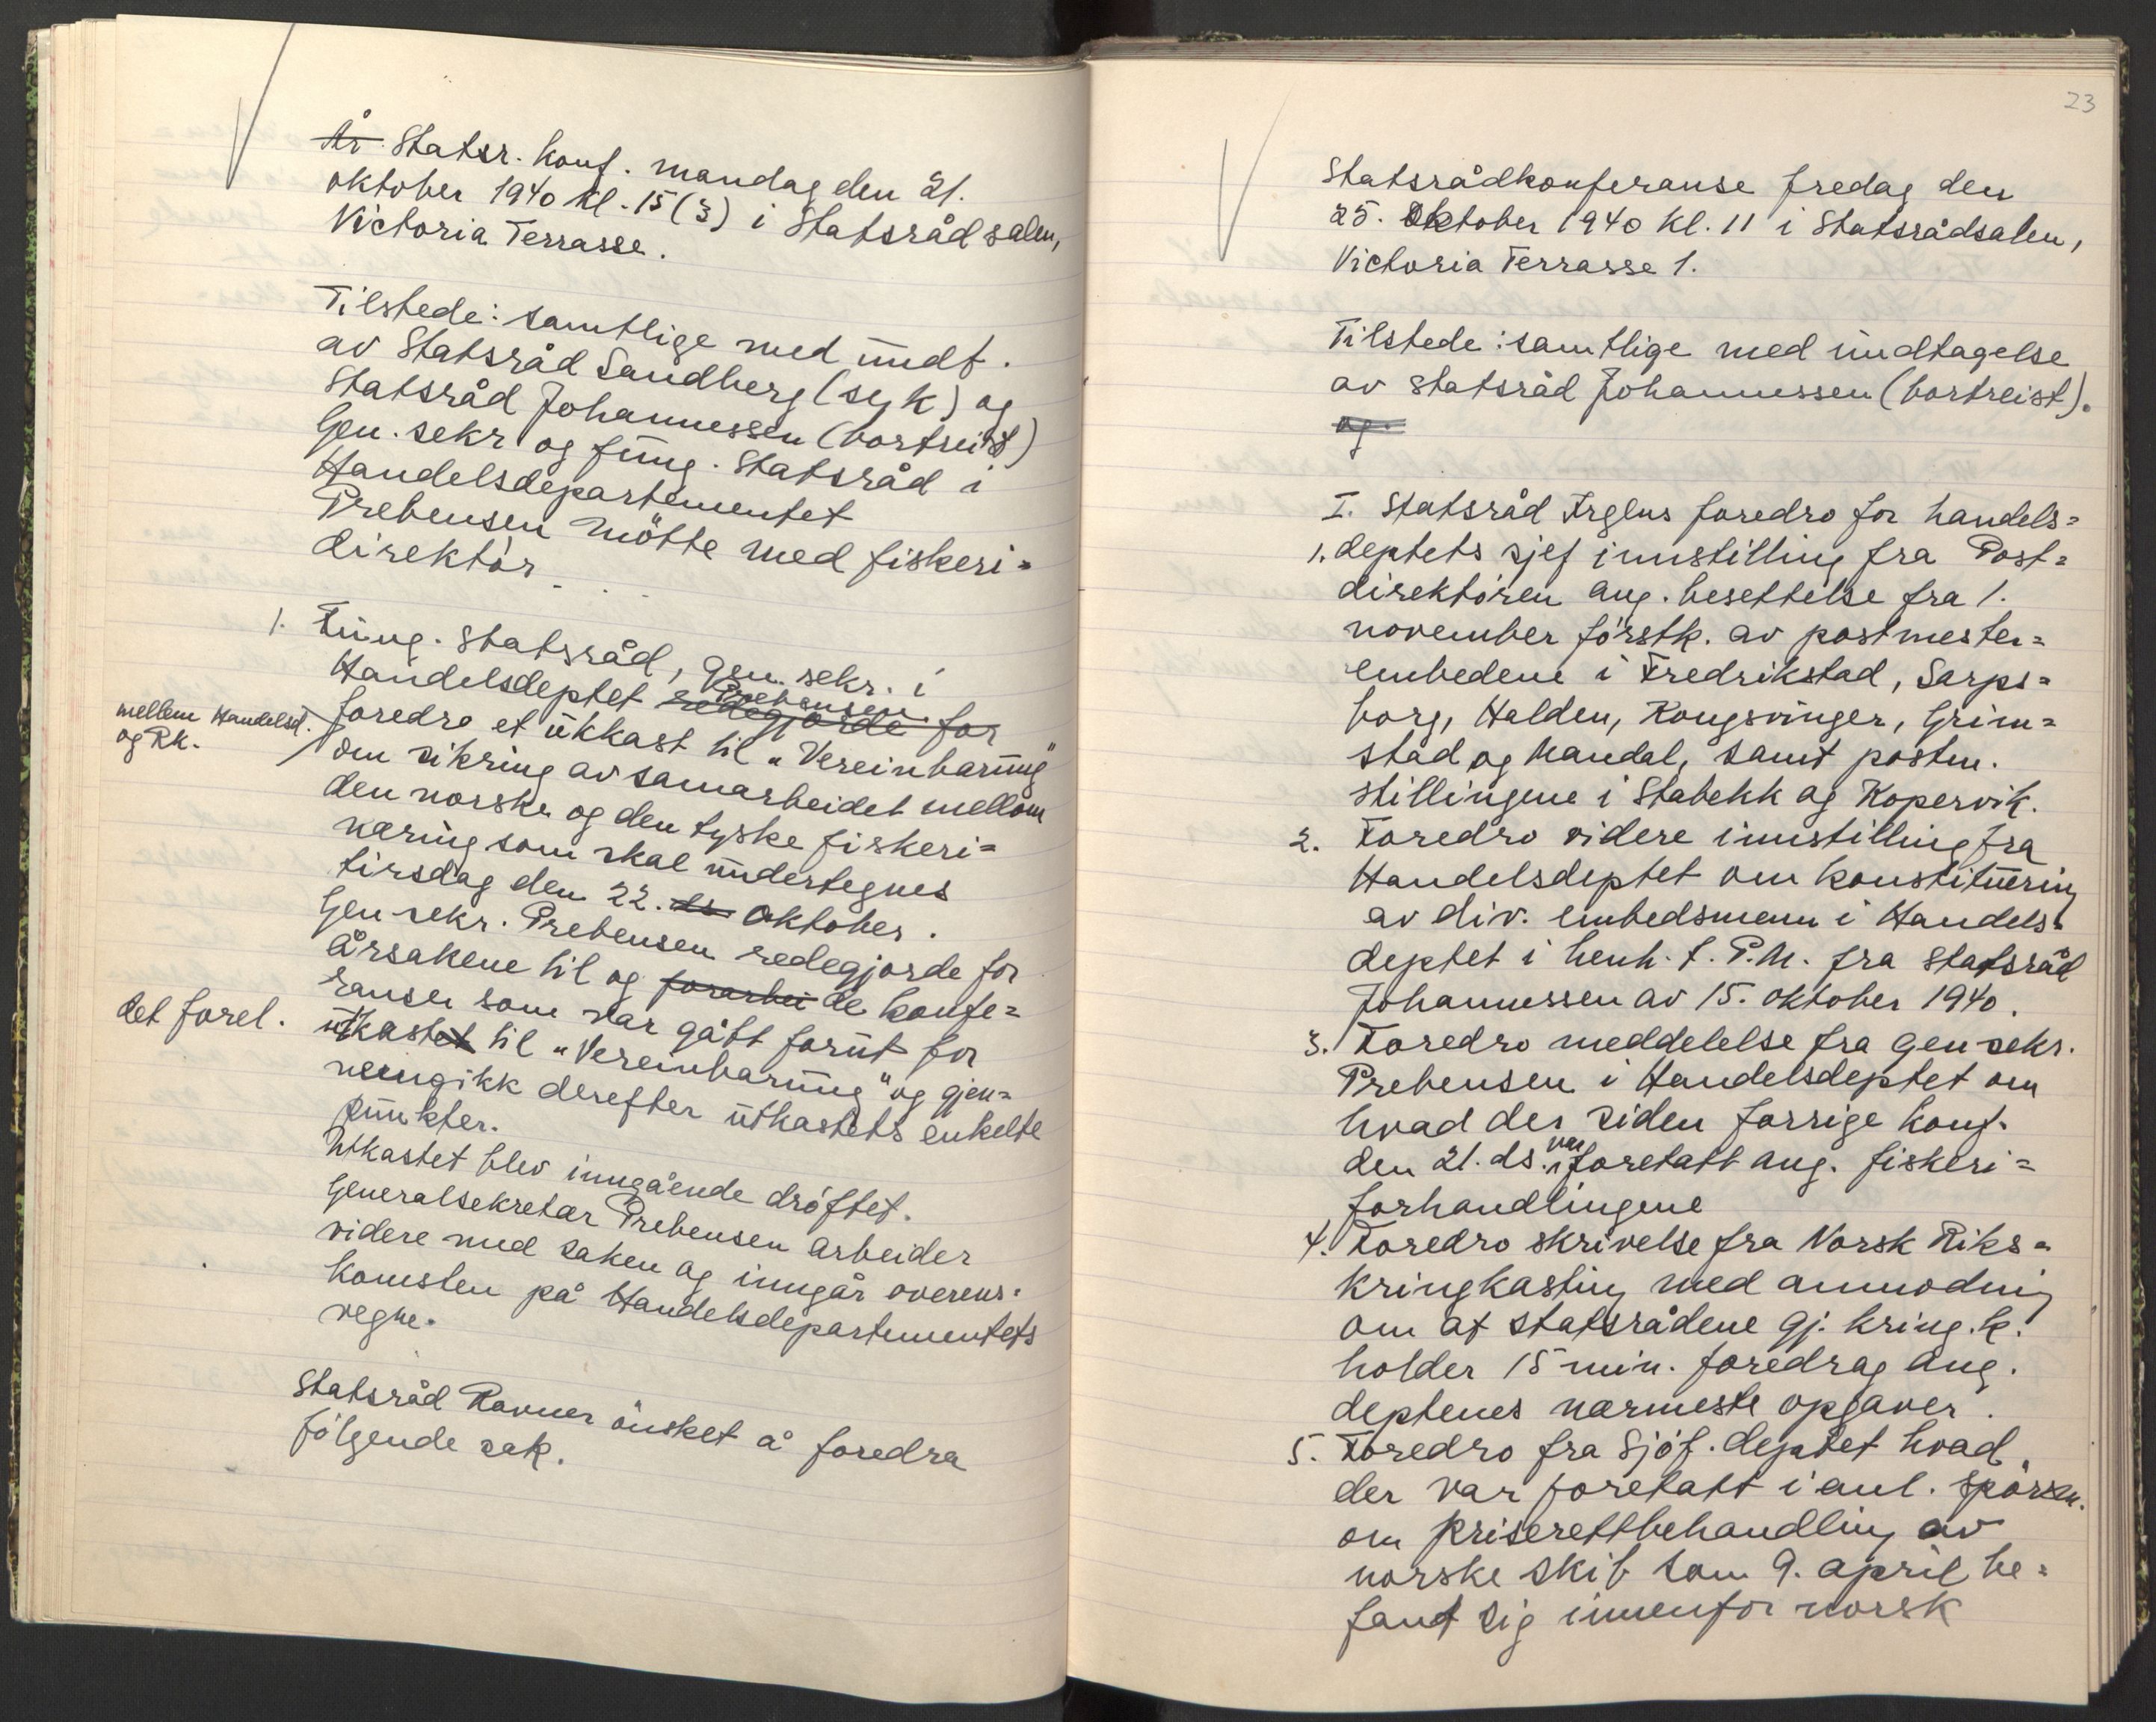 År Statsr. konf. mandag den 21.
oktober 1940 kl. 15 (3) i Statsrådsalen,
Victoria Terrasse.
Tilstede: samtlige med undt.
av Statsråd Sandberg (syk) og
Statsråd Johannessen (bortreist)
Gen. sekr og fung. Statsråd i
Handelsdepartementet
Prebensen møtte med fiskeri=
direktør
1. Fung. Statsråd, gen. sekr. i
Handelsdeptet Prebensen redegjorde for
mellem Handelsd. og RK.
foredro et utkast til "Vereinbarung"
om sikring av samarbeidet mellom
den norske og den tyske fiskeri=
næring som skal undertegnes
tirsdag den 22. ds oktober.
Gen sekr. Prebensen redegjorde for
årsakene til og forarbei de konfe=
ranser som var gått forut for
det forel. utkastet til "Vereinbarung" og gjen=
nemgikk derefter utkastets enkelte
punkter.
Utkastet blev inngående drøftet.
Generalsekretær Prebensen arbeider
videre med saken og inngår overens=
komsten på Handelsdepartementets
vegne.
Statsråd Ravner ønsket å foredra
følgende sak.
23
Statsrådkonferanse fredag den
25. Oktober 1940 kl. 11 i Statsrådsalen,
Victoria Terrasse 1.
Tilstede: samtlige med undtagelse
av statsråd Johannessen (bortreist).
og
I. Statsråd Irgens foredro for handels=
1. deptets sjef innstilling fra Post=
direktøren ang. besettelse fra 1.
november førstk. av postmester=
embedene i Fredrikstad, Sarps=
borg, Halden, Kongsvinger, Grim=
stad og Mandal, samt postm.
stillingene i Stabekk og Kopervik.
2. Foredro videre innstilling fra
Handelsdeptet om konstituering
av div. embedsmenn i Handels=
deptet i henh. t. P.M. fra Statsråd
Johannessen av 15. oktober 1940.
3. Foredro meddelelse fra gen sekr.
Prebensen i Handelsdeptet om
hvad der siden forrige konf.
den 21. ds. var foretatt ang. fiskeri=
forhandlingene
4. Foredro skrivelse fra Norsk Riks=
kringkasting med anmodning
om at statsrådene gj. kring.k.
holder 15 min. foredrag ang.
deptenes nærmeste opgaver.
5. Foredro fra Sjøf. deptet hvad
der var foretatt i anl. spørsm.
om priserettbehandling av
norske skib som 9. april be=
fant sig innenfor norsk